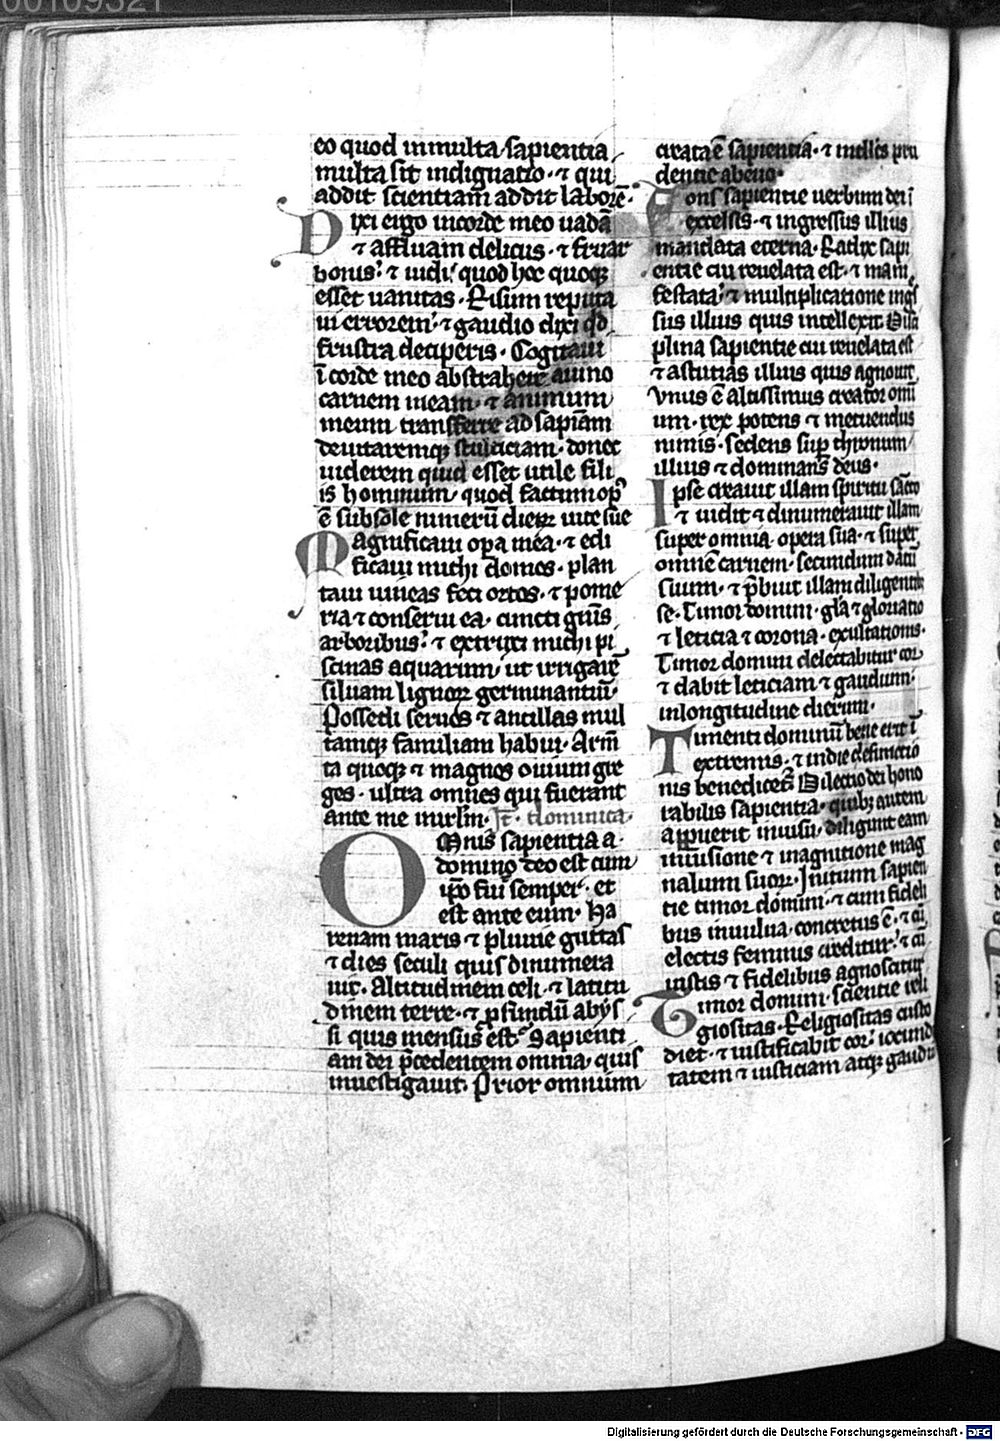 00109321
eo quod in multa sapientia
multa sit indignatio· ⁊ qui
addit scientiam addit laborē·
Dixi ergo in corde meo uadā
⁊ affluam deliciis· ⁊ fruar
bonis· ⁊ uidi quod hoc quoq₃
esset uanitas· Risum reputa
ui errorem· ⁊ gaudio dixi qd̄
frustra deciperis· Cogitaui
ī corde meo abstrahere a uino
carnem meam· ⁊ animum
meum transferre ad sapiām
deuitaremq₃ stulticiam· donec
uiderem quid esset utile fili
is hominum quod facto op
ē sub sole numerū dieꝝ uite sue
Magnificaui opa mea· ⁊ edi
ficaui michi domos· plan
taui uineas feci ortos· ⁊ pome
ria ⁊ conserui ea· cuncti gn̄is
arboribus· ⁊ extruxi michi pi
scinas aquarum· ut irrigarē
siluam lignoꝝ germinantiū·
Possedi seruos ⁊ ancillas mul
tamq₃ familiam habui· Arm̄
ta quoq₃ ⁊ magnos ouium gre
ges· ultra omnes qui fuerunt
ante me in irlm̄· dominica·
Omnis sapientia a·
domino deo est cum
ip̄o fuit semper· et
est ante eum· Ha
renam maris ⁊ pluuie guttas
⁊ dies seculi quis dinumera
uit· Altitudinem celi· ⁊ latitu
dinem terre· ⁊ ꝓfundū abys
si quis mensus est· Sapienti
am dei p̄cedentem omnia· quis
inuestigauit· Prior omnium
creata ē sapientia· ⁊ intellc̄s pru
dentie ab euo·
Fons sapientie uerbum dei ī
excelsis· ⁊ ingressus illius
mandata eterna· Radix sapi
entie cui reuelata est· ⁊ mani
festata· ⁊ multiplicatione ingꝭ
sus illius quis intellexit· Disci
plina sapientie cui reuelata est
⁊ astutias illius quis agnouit
Vnus ē altissimus creator omī
um· rex potens ⁊ metuendus
nimis· sedens suꝑ thronum
illius ⁊ dominans deus·
Ipse creauit illam spiritu sācto
⁊ uidit ⁊ dinumerauit illam
super omnia opera sua· ⁊ super
omnē carnem· secundum datū
suum· ⁊ p̄buit illam diligentib₃
se· Timor domini· gl̄a ⁊ gloriatio
⁊ leticia ⁊ corona· exultationis·
Timor domini delectabitur cor
⁊ dabit leticiam ⁊ gaudium·
in longitudine dierum·
Timenti dominū bene erit ī
extremis· ⁊ in die defunctio
nis benedicet· Dilectio dei hono
rabilis sapientia· quib₃ autem
apparuerit in uisu· diligunt eam
in uisione ⁊ magnitione mag
nalium suoꝝ· Initium sapien
tie timor domini· ⁊ cum fideli
bus in uulua· concretus ē· ⁊ cū
electis feminis creditur· ⁊ cū
iustis ⁊ fidelibus agnoscitur
Timor domini· scientie reli
giositas· Religiositas custo
diet· ⁊ iustificabit cor· iocundi
tatem ⁊ iusticiam atq₃ gaudiū
Digitalisierung gefördert durch die Deutsche Forschungsgemeinschaft - DFG